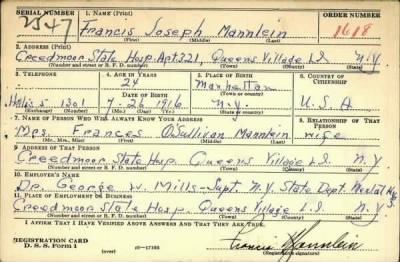 SERIAL NUMBER 1. NAME (Print) ORDER NUMBER
2547 Francis Joseph Mannlein 1618
(First) (Middle) (Last)
2. ADDRESS (Print)
Creedmoor State Hosp. Apt. 221, Queens Village L.I. N.Y.
(Number and street or R. F. D. number) (Town) (County) (State)
3. TELEPHONE 4. AGE IN YEARS 5. PLACE OF BIRTH 6. COUNTRY OF CITIZENSHIP
24 Manhattan
DATE OF BIRTH
Hollis 5 1301 7-26-1916 N.Y. U.S.A
(Exchange) (Number) (Mo.) (Day) (Yr.) (State or country)
7. NAME OF PERSON WHO WILL ALWAYS KNOW YOUR ADDRESS 8. RELATIONSHIP OF THAT PERSON
Mrs. Frances O'Sullivan Mannlein wife
(Mr., Mrs., Miss) (First) (Middle) (Last)
9. ADDRESS OF THAT PERSON
Creedmoor State Hosp. Queens Village L.I. N.Y
(Number and street or R. F. D. number) (Town) (County) (State)
10. EMPLOYER'S NAME
Dr. George W. Mills - Supt. N.Y. State Dept. Mental Hyg
11. PLACE OF EMPLOYMENT OR BUSINESS
Creedmoor State Hosp. Queens Village L.I. N.Y.
(Number and street or R. F. D. number) (Town) (County) (State)
I AFFIRM THAT I HAVE VERIFIED ABOVE ANSWERS AND THAT THEY ARE TRUE.
REGISTRATION CARD
D. S. S. Form 1 16—17105 Francis J Mannlein
(Registrant's signature)